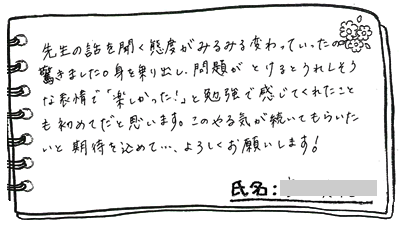 先生の話を聞く態度がみるみる変わっていったの
驚きました。身を乗り出し、問題が とけるとうれしそう
な表情で「楽しかった!」と勉強で感じてくれたこと
も初めてだと思います。このやる気が続いてもらいた
いと 期待を込めて…、よろしくお願いします!
氏名: